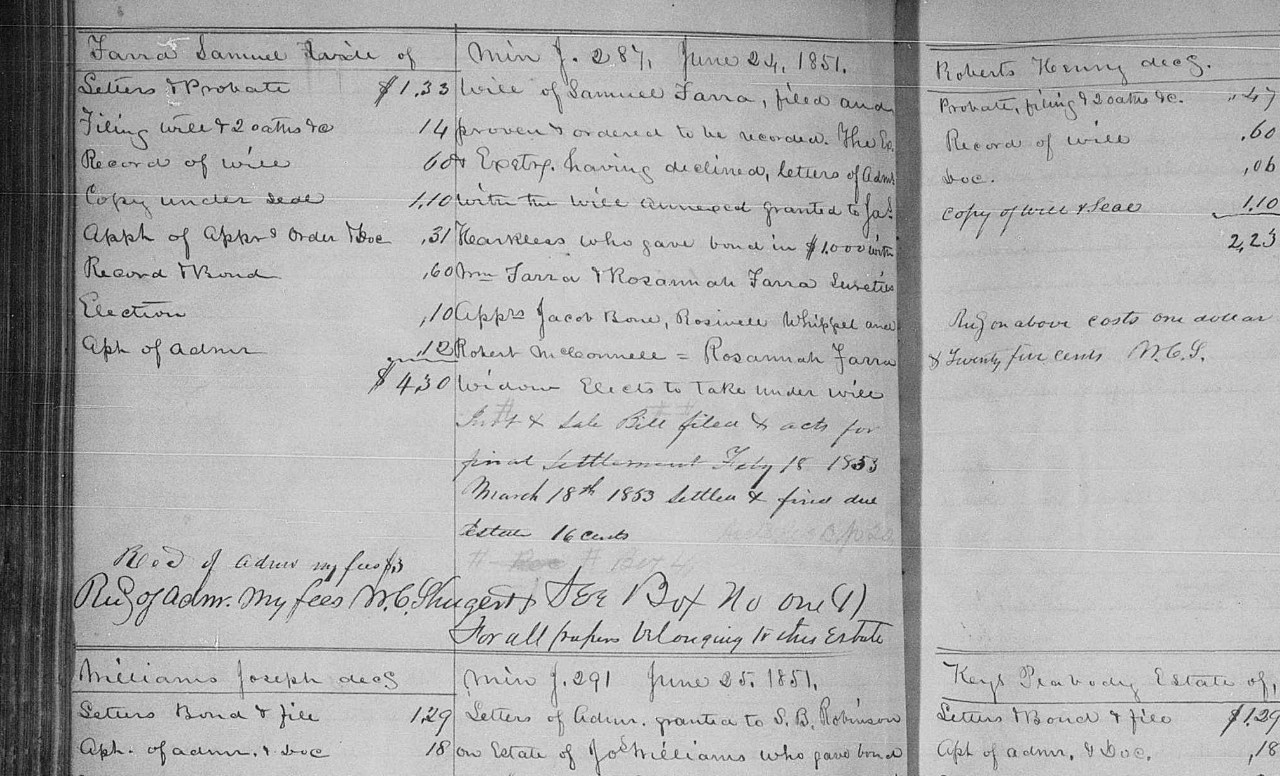 Farra Samuel Will of
Letters & Probate $1.33
Filing will & 2 oaths &c 14
Record of will 60
Copy under seal 1,10
Apph of Apprs Order & Doc ,31
Record & Bond ,60
Election ,10
Aph of admr 12
$4,30
Recd of admr my fees $3
Recd of Adm. my fees W. C. Shugert
Min J. 287, June 24, 1851.
Will of Samuel Farra, filed and
proven & ordered to be recorded. The Ex.
& Exetrx. having declined, letters of Adm
with the will annexed granted to Jas
Harkless who gave bond in $1.000 with
Wm Farra & Rosannah Farra Sureties
Apprs Jacob Bone, Roswell Whippel and
Robert McConnell = Rosannah Farra
Widow Elects to take under will
Invt & Sale Bill filed & acts for
final Settlement Feby 18 1853
March 18th 1853 Settled & find due
Estate 16 cents
# Box # Box 4
See Box No one (1)
For all papers belonging to this Estate
Roberts Henry decd.
Probate, filing & 2 oaths &c. ,,47
Record of will ,60
Doc. ,06
Copy of will & Seal 1,10
2,23
Recd on above costs one dollar
& Twenty five cents W.C.S.
Williams Joseph decd
Letters Bond & file 1,29
Aph. of admr. & Doc 18
Min J. 291 June 25, 1851.
Letters of Admr. granted to S. B. Robinson
on Estate of Jos Williams who gave bond
Keys Peabody Estate of,
Letters & Bond & file $1,29
Aph of admr. & Doc. ,18